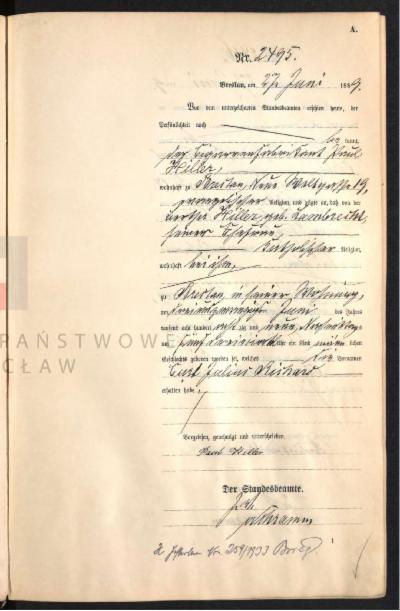 A.
Nr. 2495.
Breslau, am 27 Juni 1889.
Vor dem unterzeichneten Standesbeamten erschien heute, der
Persönlichkeit nach
be kannt,
der Cigarrenfabrikant Paul
Hiller,
wohnhaft zu Breslau, Neue Weltgasse 19,
evangelischer Religion, und zeigte an, daß von der
Bertha Hiller, geb. Lambrecht,
seiner Ehefrau,
katholischer Religion,
wohnhaft bei ihm,
zu Breslau, in seiner Wohnung,
am Juni des Jahres
tausend acht hundert acht zig und neun, Nachmittags
um fünf Uhr ein Kind männ lichen
Geschlechts geboren worden sei, welches die Vornamen
Curt Julius Richard
erhalten habe.
Vorgelesen, genehmigt und unterschrieben.
Paul Hiller
Der Standesbeamte.
PAŃSTWOWE
CŁAW